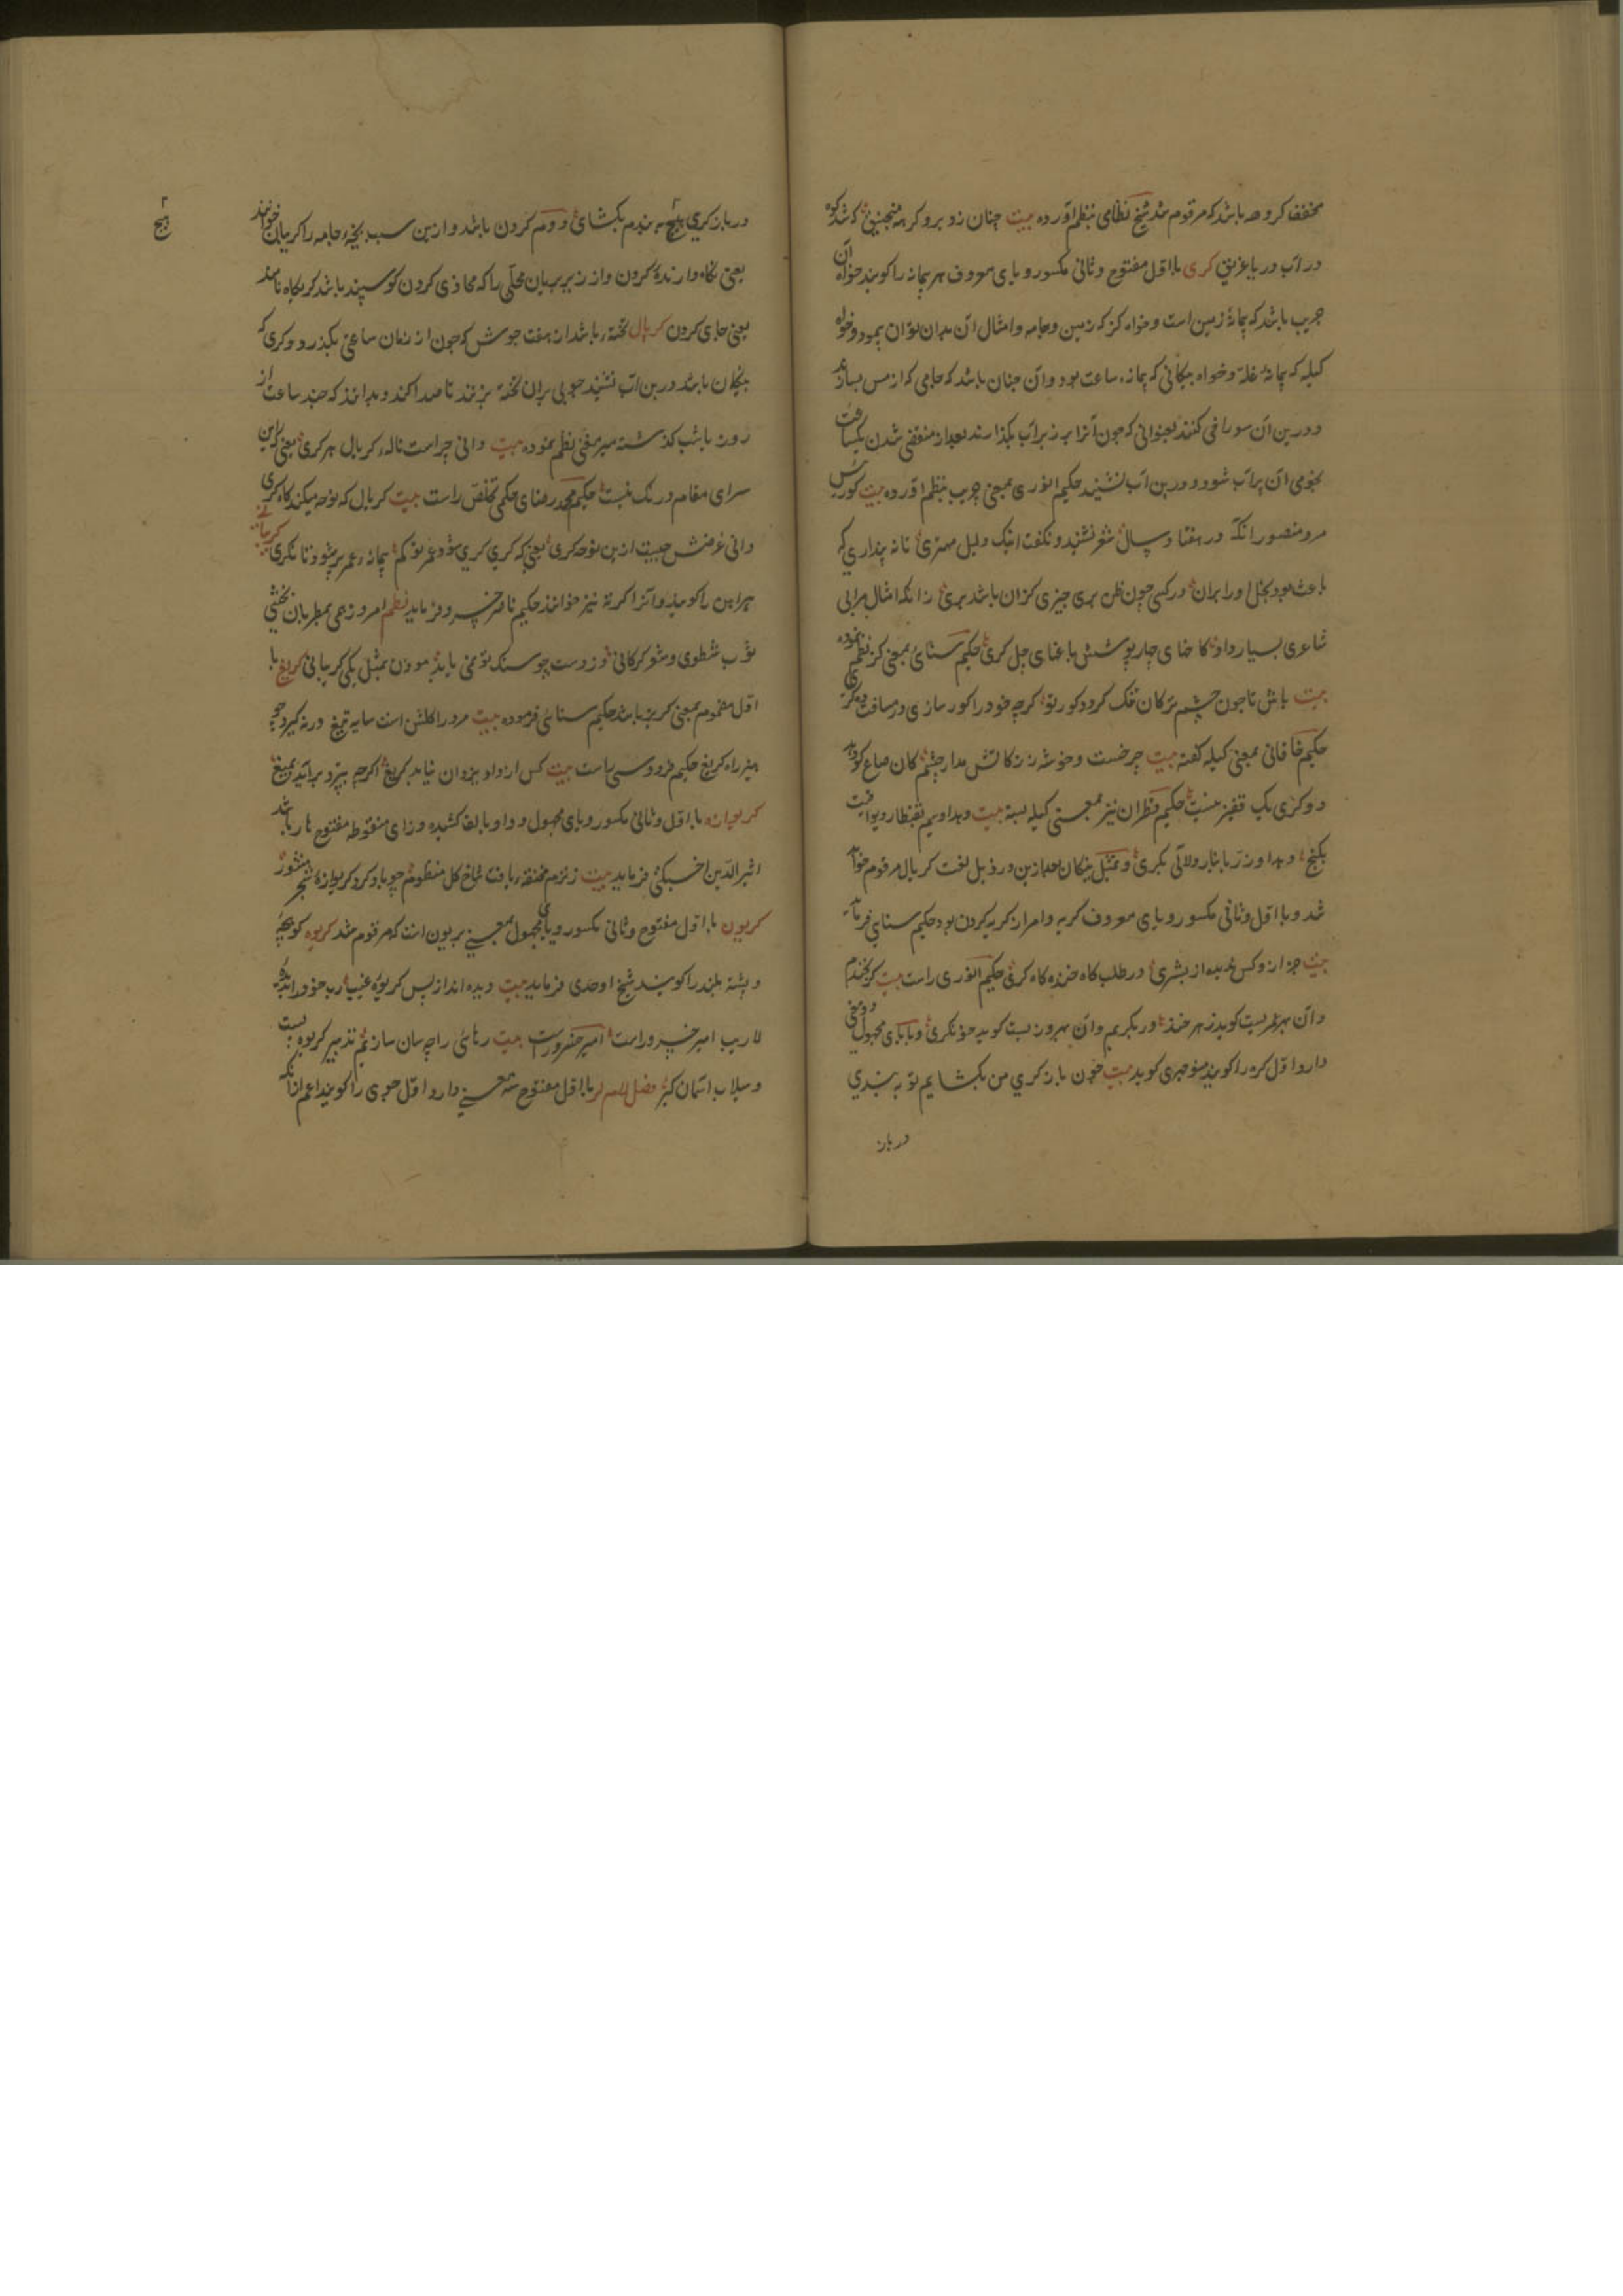 مخفف کروه باشد که مرقوم شد شیخ نظامی بنظم آورده بیت چنان زد برو کر به منجنیق که شد کوه
در آب دریا غریق کری با اول مفتوح و ثانی مکسور و یای معروف هر پیمانه را کویند خواه آن
جریب باشد که پیمانۀ زمین است و خواه کز که زمین و جامه و امثال آن بدان توان پیمود و خواه
کیله که پیمانۀ غله و خواه پنکانی که پیمانۀ ساعت بود و آن چنان باشد که جامی که از مس بسازند
و در بن آن سوراخی کنند بعنوانی که چون آنرا بر زبر آب بکذارند بعد از منقضی شدن یکساعت
نجومی آن پر آب شود و در بن آب نشیند حکیم انوری بمعنی جریب بنظم آورده بیت کورس
مرو منصور آنکه در هفتاد سال شعر نشنید و نکفت اینک دلیل مهتری تا نه پنداری که
باعث بود بخل او را بر آن در کسی چون ظن بری چیزی کزان باشد بری زانکه امثال مرا بی
شاعری بسیار داد کاخهای چارپوشش باغهای چل کری حکیم سنائی بمعنی کز نظم نموده
بیت باش تا چون چشم ترکان تنک کردد کور تو کرچه خود را کور سازی در مسافت ده کری
حکیم خاقانی بمعنی کیله کفته بیت چرخست و خوشه زر کاتش مدار چشم کان صاع کو دهد
دو کری یک قفیز نیست حکیم قطران نیز بمعنی کیله بسته بیت و بداد سیم بقنطار و یواقیت
بکنج و بداد زر بانبار و لآلی بکری و تمثیل پنکان بعد ازین در ذیل لغت کریال مرقوم خواهد
شد و با اول و ثانی مکسور و یای معروف کریه و امر از کریه کردن بود حکیم سنایی فرماید
بیت جز از و کس ندیده از بشری در طلب کاه خنده کاه کری حکیم انوری راست بیت کر بخندم
و آن بهر عمریست کوید زهر خند ور بکریم و آن بهر روزیست کوید خون کری و با یای مجهول دو معنی
دارد اول کره را کویند منوچهری کوید بیت چون باز کری من بکشایم تو به بندی
در باز
در باز کری هیچ به بندم بکشائی دوم کردن باشد و ازین سبب یخۀ جامه را کریبان خوانند
یعنی نکاه دارندۀ کردن و از زبر بریان محلی را که محاذی کردن کوسپند باشد کریکاه نامند
یعنی جای کردن کریال تخته باشد از هفت جوش که چون از زمان ساعتی بکذرد و کری که
پنکان باشد در بن آب نشیند چوبی بران تخته بزنند تا صدا کند و بدانند که چند ساعت از
روز یا شب کذشته میر مغنی نظم نموده بیت دانی چراست نالۀ کریال هر کری یعنی که این
سرای مقام درنک نیست حکیم محمد رضای حکمی تخلص راست بیت کریال که نوحه میکند کاه کری
دانی غرضش چیست ازین نوحه کری یعنی که کری کری شود عمر تو کم پیمانۀ عمر پر شود تا نکری کریبانی
پیراهن را کویند و آنرا کرته نیز خوانند حکیم ناصر خسرو فرماید نظم امروز همی بمطربان بخشی
ثوب شطوی و شعر کرکانی وز دست چو سنک تو نمی یابد موذن بمثل یکی کریبانی کریغ با
اول مضموم بمعنی کریز باشد حکیم سنائی فرموده بیت مرد را کلشن است سایه تیغ ور نه کیرد چو
هیز راه کریغ حکیم فردوسی راست بیت کس از داد یزدان نیابد کریغ اکرچه بپرد برآید بمیغ
کریوازه با اول و ثانی مکسور و یای مجهول و واو بالف کشیده و زای منقوطه مفتوح ها باشد
اثیر الدین اخسیکتی فرماید بیت ز نزم مخنقه یافت شاخ کل منظوم چو باد کرد کریوازۀ شجر منثور
کریون با اول مفتوح و ثانی مکسور و یای مجهول بمعنی بریون است که مرقوم شد کریوه کوهچه
و پشته بلند را کویند شیخ اوحدی فرماید بیت دیده انداز پس کریوۀ غیب رب خود را بدیده
لاریب امیر خسرو راست بیت رهائی را چه سان سازیم تدبیر کریوه پست
و سیلاب آسمان کیر فصل لام لر با اول مفتوح سه معنی دارد اول جوی را کویند اعم از آنکه
هیچ